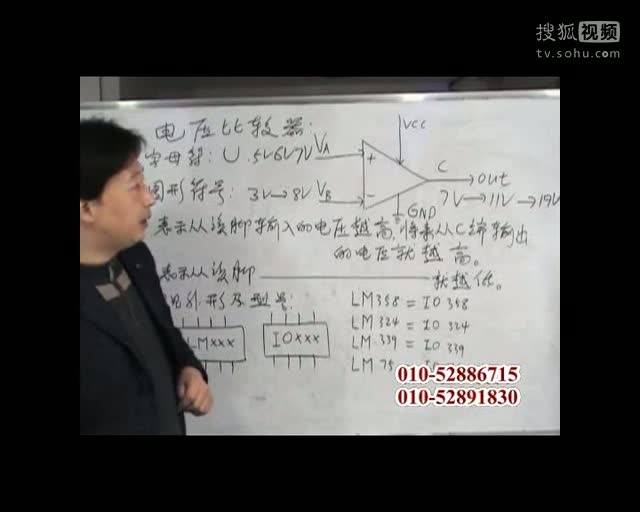 搜狐视频
tv.sohu.com
电压比较器:
字母符: U. 5V6V7V VA
图形符号: 3V→8V VB
+
-
VCC
C
out
GND
7V→11V→19V
表示从该脚输入的电压越高,将来从C端输出
的电压就越高。
表示从该脚 就越低。
外形及型号:
LMxxx
IOxxx
LM358 = IO 358
LM 324 = IO 324
LM 339 = IO 339
LM 75
010-52886715
010-52891830